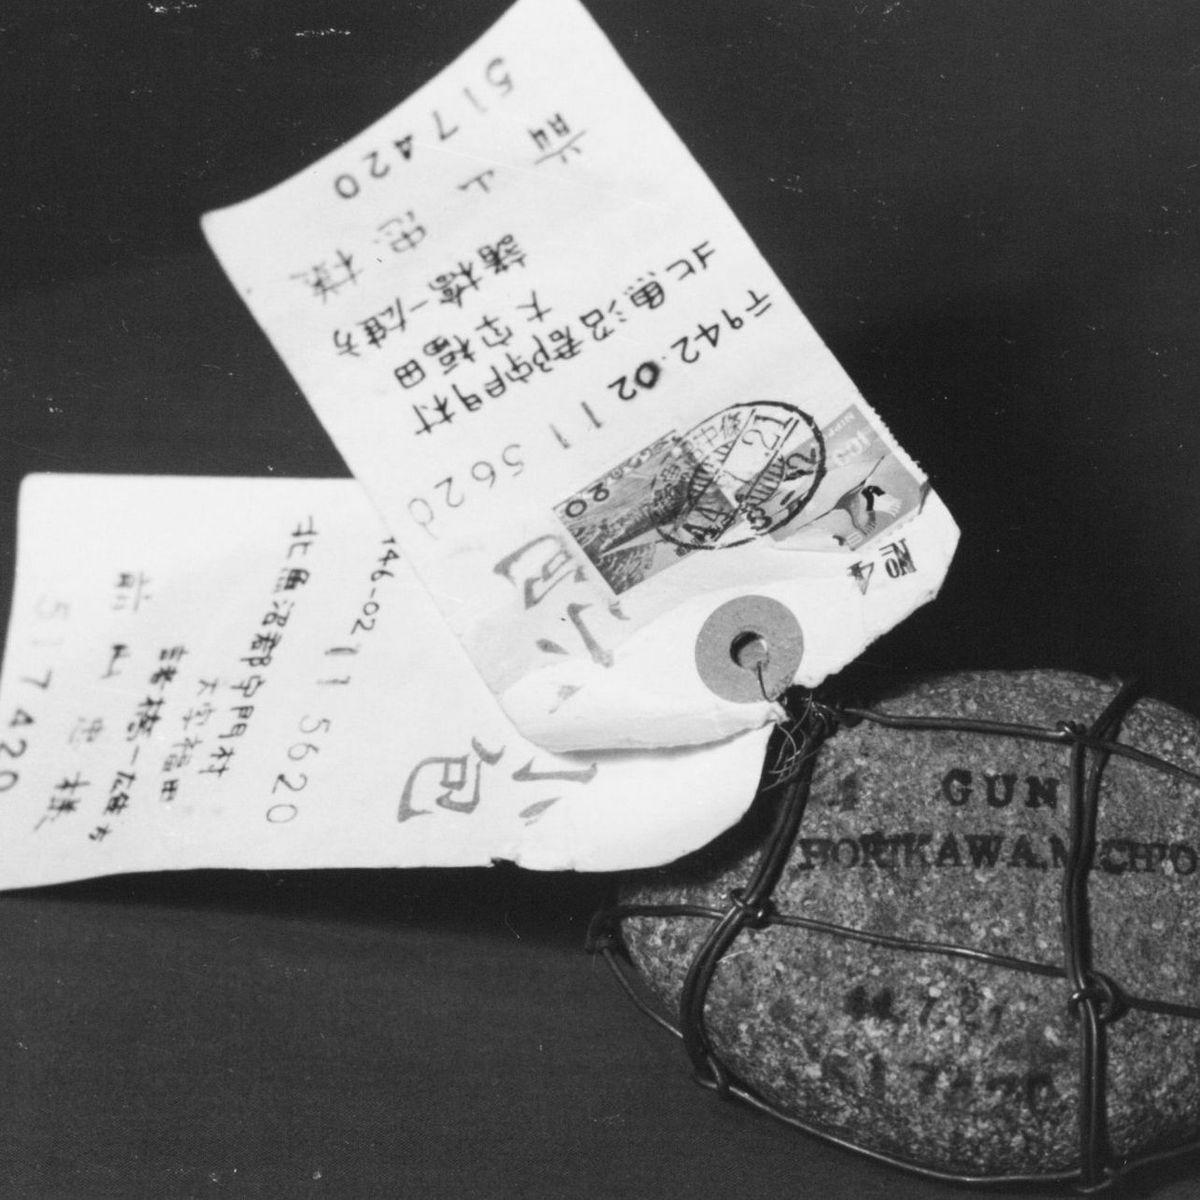 517420
前山忠様
諸橋一雄方
大字福田
北魚沼郡守門村
〒942.02
11 5620
小包
No 4
20
44
21
12
517420
前山忠様
諸橋一雄方
大字福田
北魚沼郡守門村
946-02
11 5620
小包
GUN
HORIKAWA MICHIO